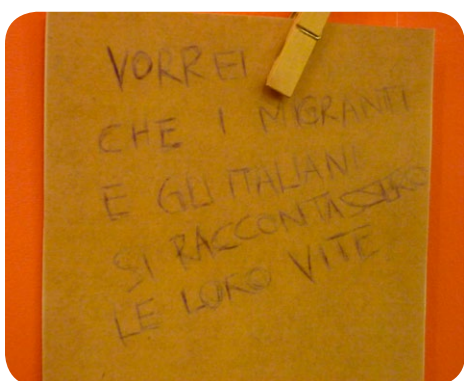 VORREI
CHE I MIGRANTI
E GLI ITALIANI
SI RACCONTASSERO
LE LORO VITE